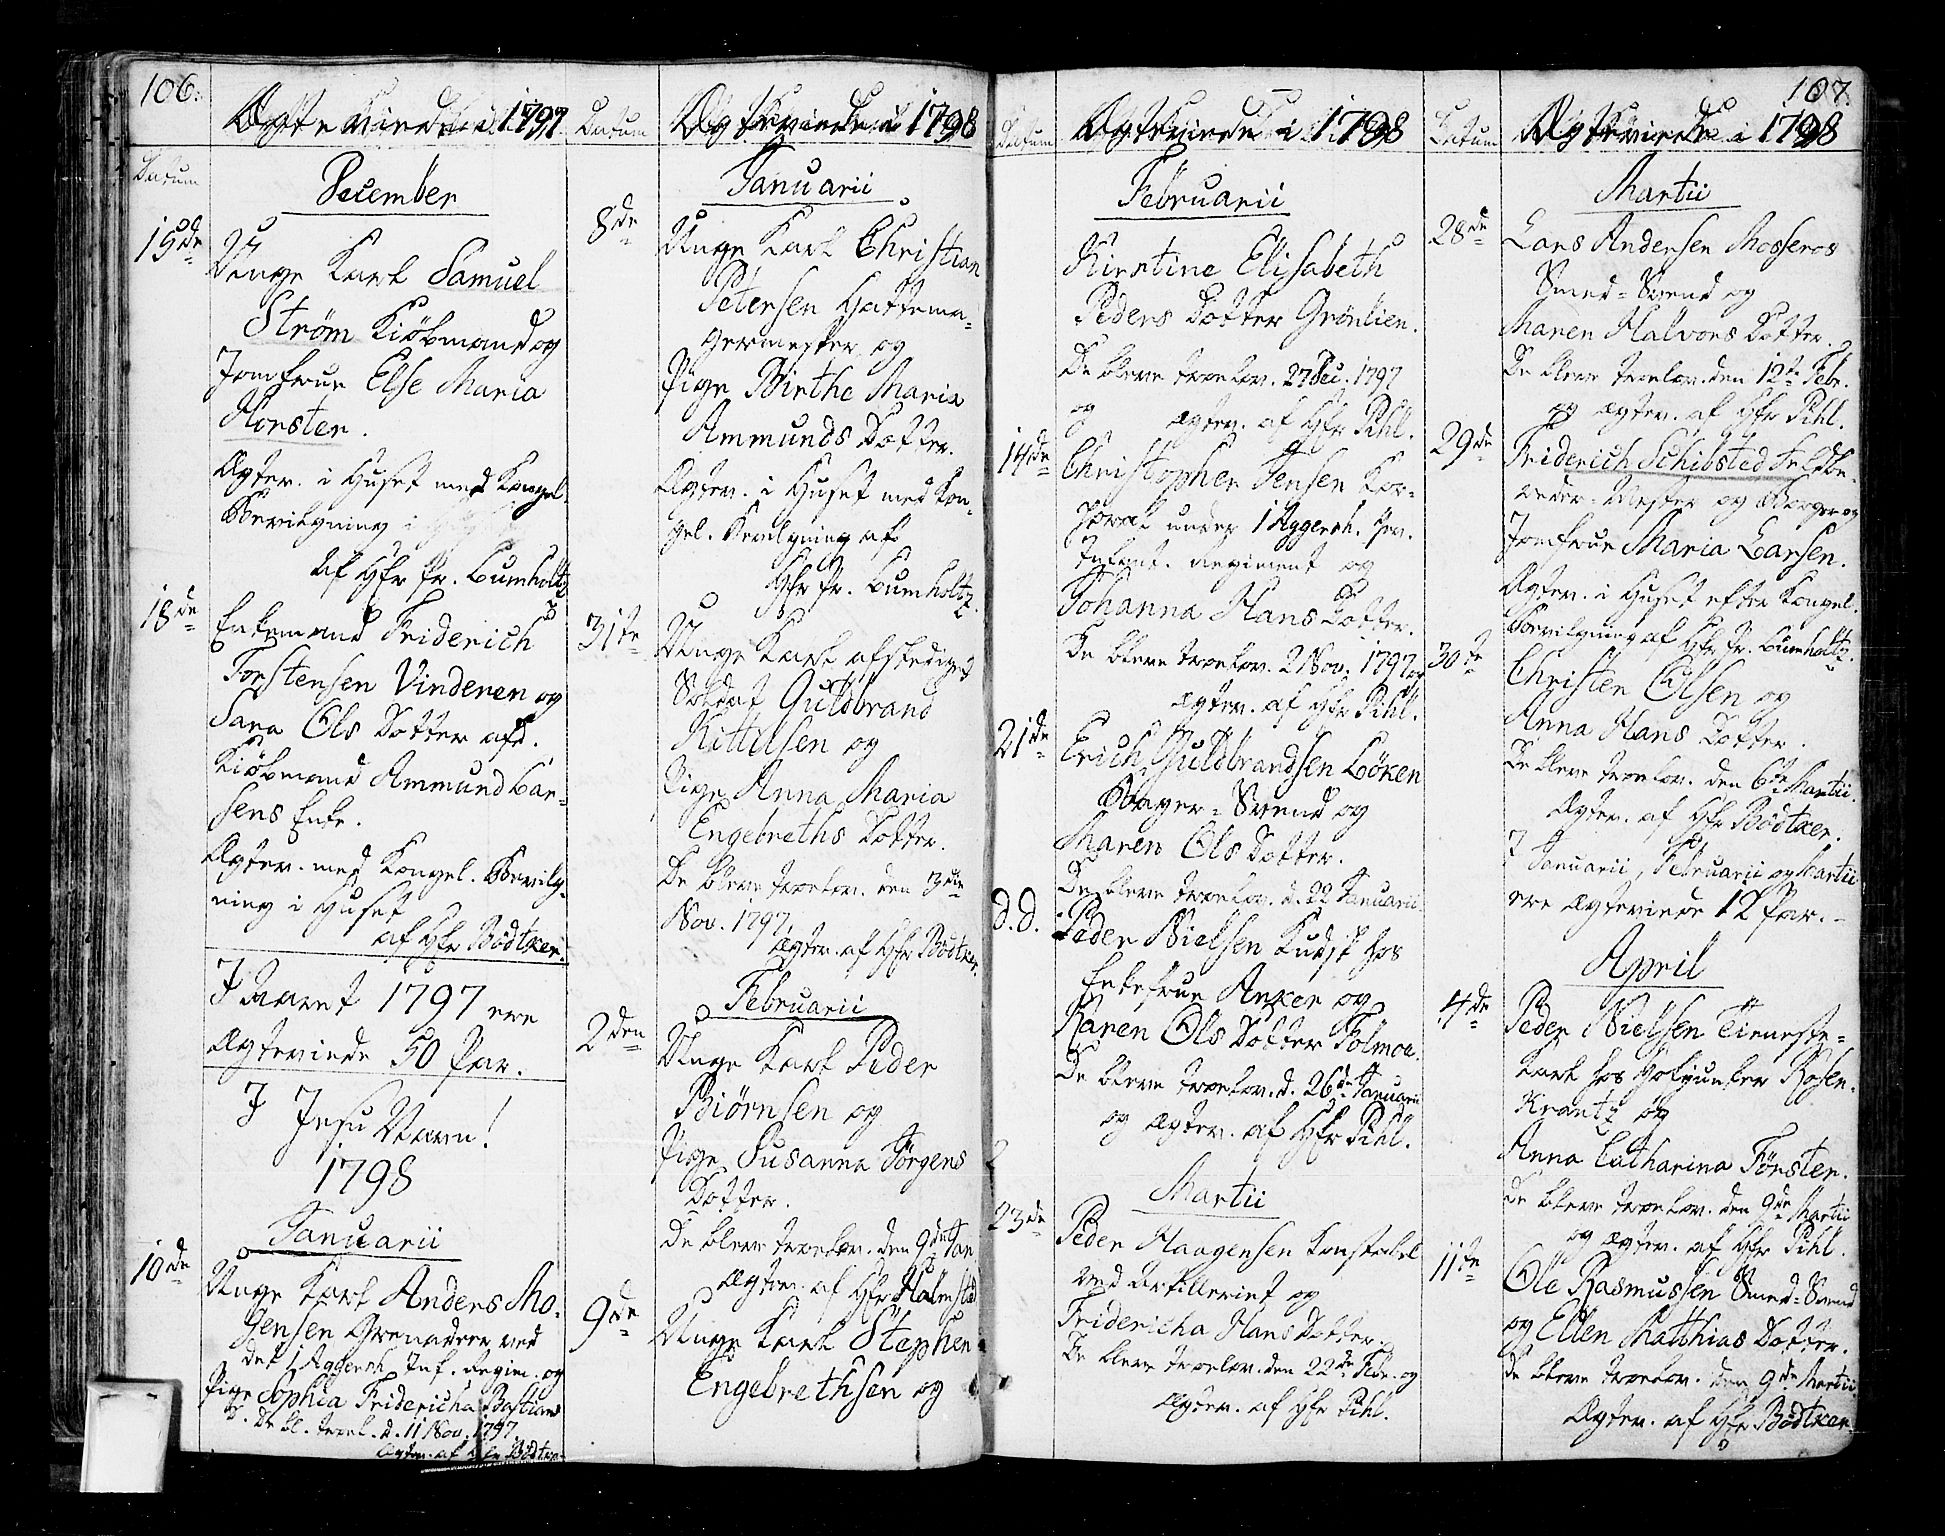 106.
Ægteviede i 1797
Datum
December
15de
Unge Karl Samuel
Strøm Kiøbmand og
Jomfrue Else Maria
Horster.
Ægtev. i Huset med Kongel.
Bevilgning
af Hfr Pr. Lumholtz
18de
Enkemand Friderich
Torstensen Vinderen og
Sara Ols Dotter afd.
Kiøbmand Ammund Lar-
sens Enke.
Ægtev. med Kongel. Bevilg-
ning i Huset
af Hfr Bødtker.
I Aaret 1797 ere
Ægteviede 50 Par.
I Jesu Navn!
1798
Januarii
10de
Unge Karl Anders Mo-
gensen Grenadeer ved
det 1 Aggersh. Inf. Regim. og
Pige Sophia Fridericha Bastians
D. De bl. trol. d. 11 Nov. 1797
Ægtev. af Hfr Bødtker
Datum
Ægteviede i 1798
Januarii
8de
Unge Karl Christian
Petersen Hattema-
germester og
Pige Birthe Maria
Ammunds Dotter.
Ægtev. i Huset med Kon-
gel. Bevilgning af
Hfr Pr. Lumholtz.
31te
Unge Karl afskediget
Soldat Guldbrand
Kittilsen og
Pige Anna Maria
Engebreths Dotter.
De bleve troelov. den 3die
Nov. 1797
Ægtev. af Hfr Bødtker.
Februarii
2den
Unge Karl Peder
Biørnsen og
Pige Susanna Jørgens
Dotter.
De bleve troelov. den 9de Jan
Ægtev. af Hfr Halmstad
9de
Unge Karl Stephen
Engebrethsen og
Datum
Ægteviede i 1798
Februarii
Kirstine Elisabeth
Peders Dotter Grönlien.
De bleve troelov. 27 Dec. 1797
og ægtev. af Hfr Pihl.
14de
Christopher Jensen Kor-
poral under 1 Aggersh.
Infant. Regiment og
Johanna Hans Dotter.
De bleve troelov. 2 Nov. 1797 og
ægtev. af Hfr Pihl.
21de
Erich Guldbrandsen Löken
Borger-Svend og
Maren Ols Dotter.
De bleve troelov. d. 22 Januarii
d.d.
Peder Nielsen Kudsk hos
Enkefrue Anker og
Karen Ols Dotter Tolmoe.
De bleve troelov. d. 26de Januarii
og ægtev. af Hfr Pihl.
Martii
23de
Peder Haagensen Konstabel
ved Artilleriet og
Fridericha Hans Dotter.
De bleve troelov. den 22de Febr. og
Ægtev. af Hfr Pihl.
107.
Datum
Ægteviede i 1798
Martii
28de
Lars Andersen Mosseros
Smed-Svend og
Maren Halvors Dotter.
De bleve troelov. den 12te Febr.
og ægtev. af Hfr Pihl.
29de
Friderich Schibsted Feldbe-
reder-Mester og Borger og
Jomfrue Maria Larsen.
Ægtev. i Huset efter Kongel.
Bevilgning af Hfr Pr. Lumholtz.
30te
Christen Olsen og
Anna Hans Dotter.
De bleve troelov. den 6te Martii.
Ægtev. af Hfr Bødtker.
I Januarii, Februarii og Martii
ere Ægteviede 12 Par.
April
4de
Peder Nielsen Tieneste-
karl hos Hofjunker Rosen-
krantz og
Anna Catharina Törster.
De bleve troelov. den 9de Martii
og ægtev. af Hfr Pihl.
11te
Ole Rasmussen Smed-Svend
og Ellen Matthias Dotter.
De bleve troelov. den 9de Martii
Ægtev. af Hfr Bødtker